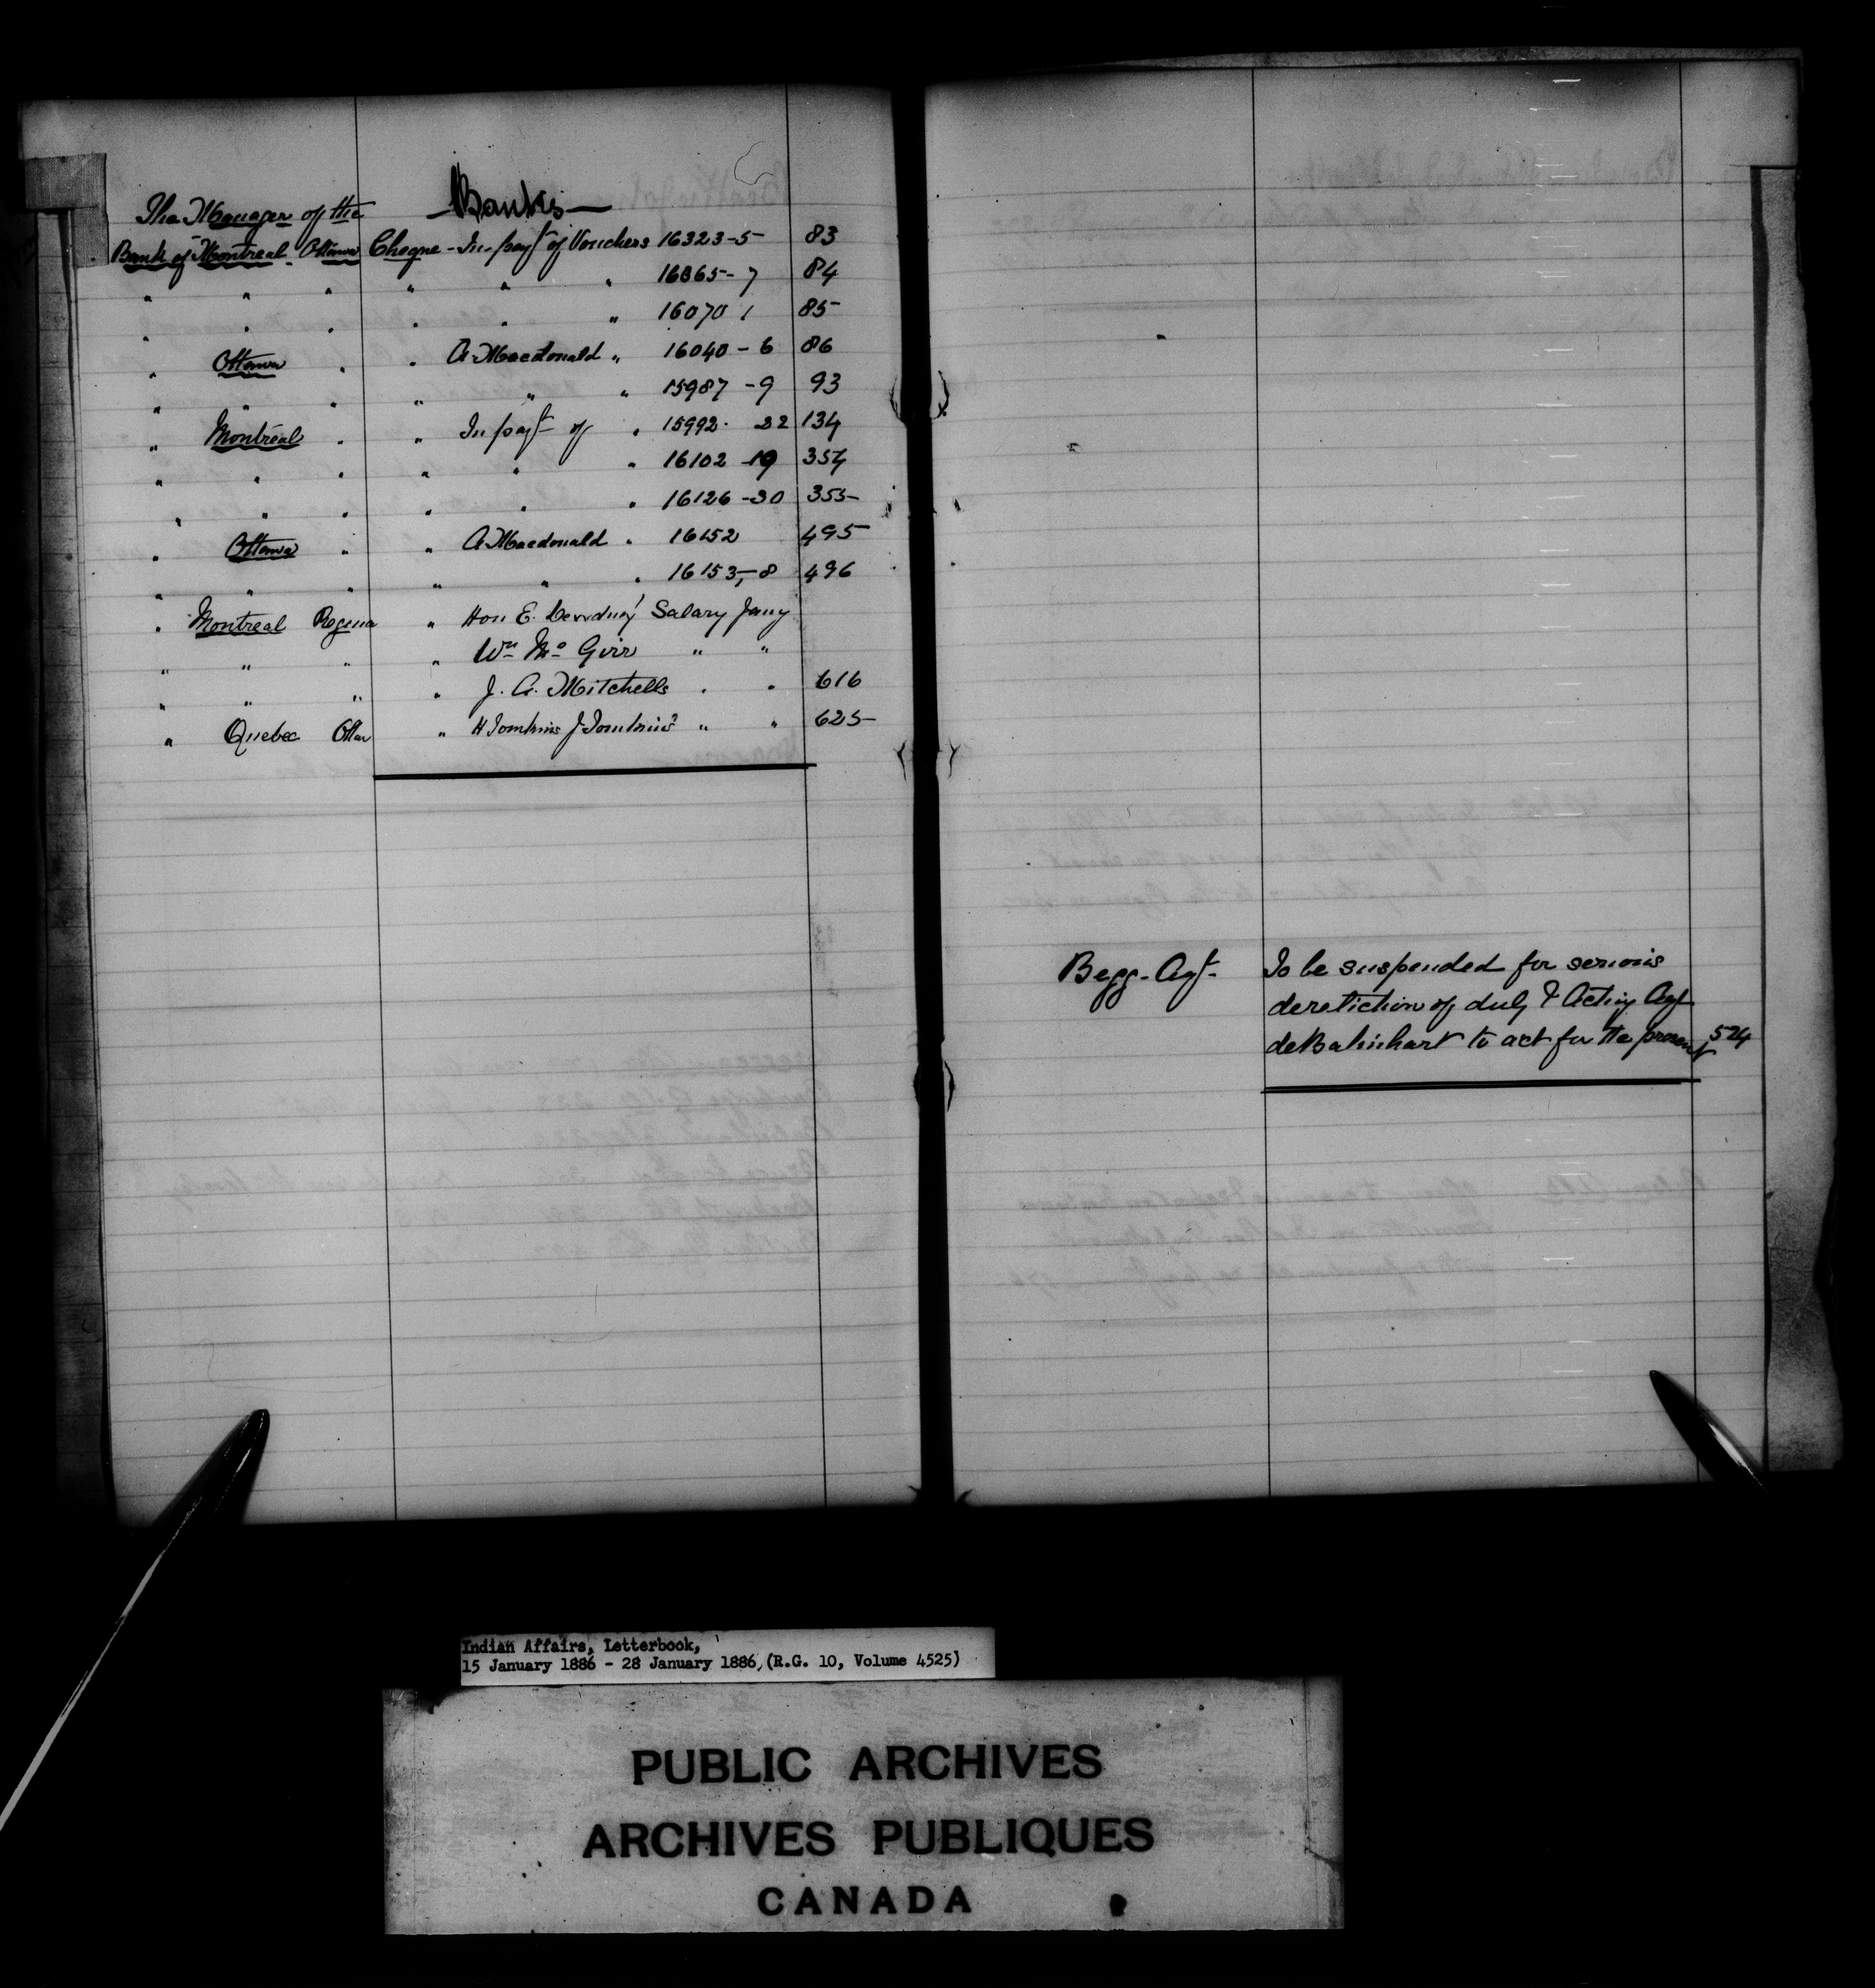 The Manager of the
—Banks—
Bank of Montreal Ottawa Cheque - In payt of Vouchers 16323-5 83
" " " " " " 16865-7 84
" " " " " " 16070 1 85
" Ottawa " " A. Macdonald " 16040-6 86
" " " " " " 15987-9 93
" Montreal " " In payt of " 15992-22 134
" " " " " " 16102-19 354
" " " " " " 16126-30 355
" Ottawa " " A Macdonald " 16152 495
" " " " " " 16153,-8 496
" Montreal Regina " Hon E. Dewdney Salary Jany
" " " " Wm Mc Girr " "
" " " " J. A. Mitchells " " 616
" Quebec Ottaw " H Tomkins J Tomkins " " 625
Begg- Agt- To be suspended for serious
dereliction of duty & Acting Agt
deBalinhart to act for the present 524
Indian Affairs, Letterbook,
15 January 1886 - 28 January 1886, (R.G. 10, Volume 4525)
PUBLIC ARCHIVES
ARCHIVES PUBLIQUES
CANADA